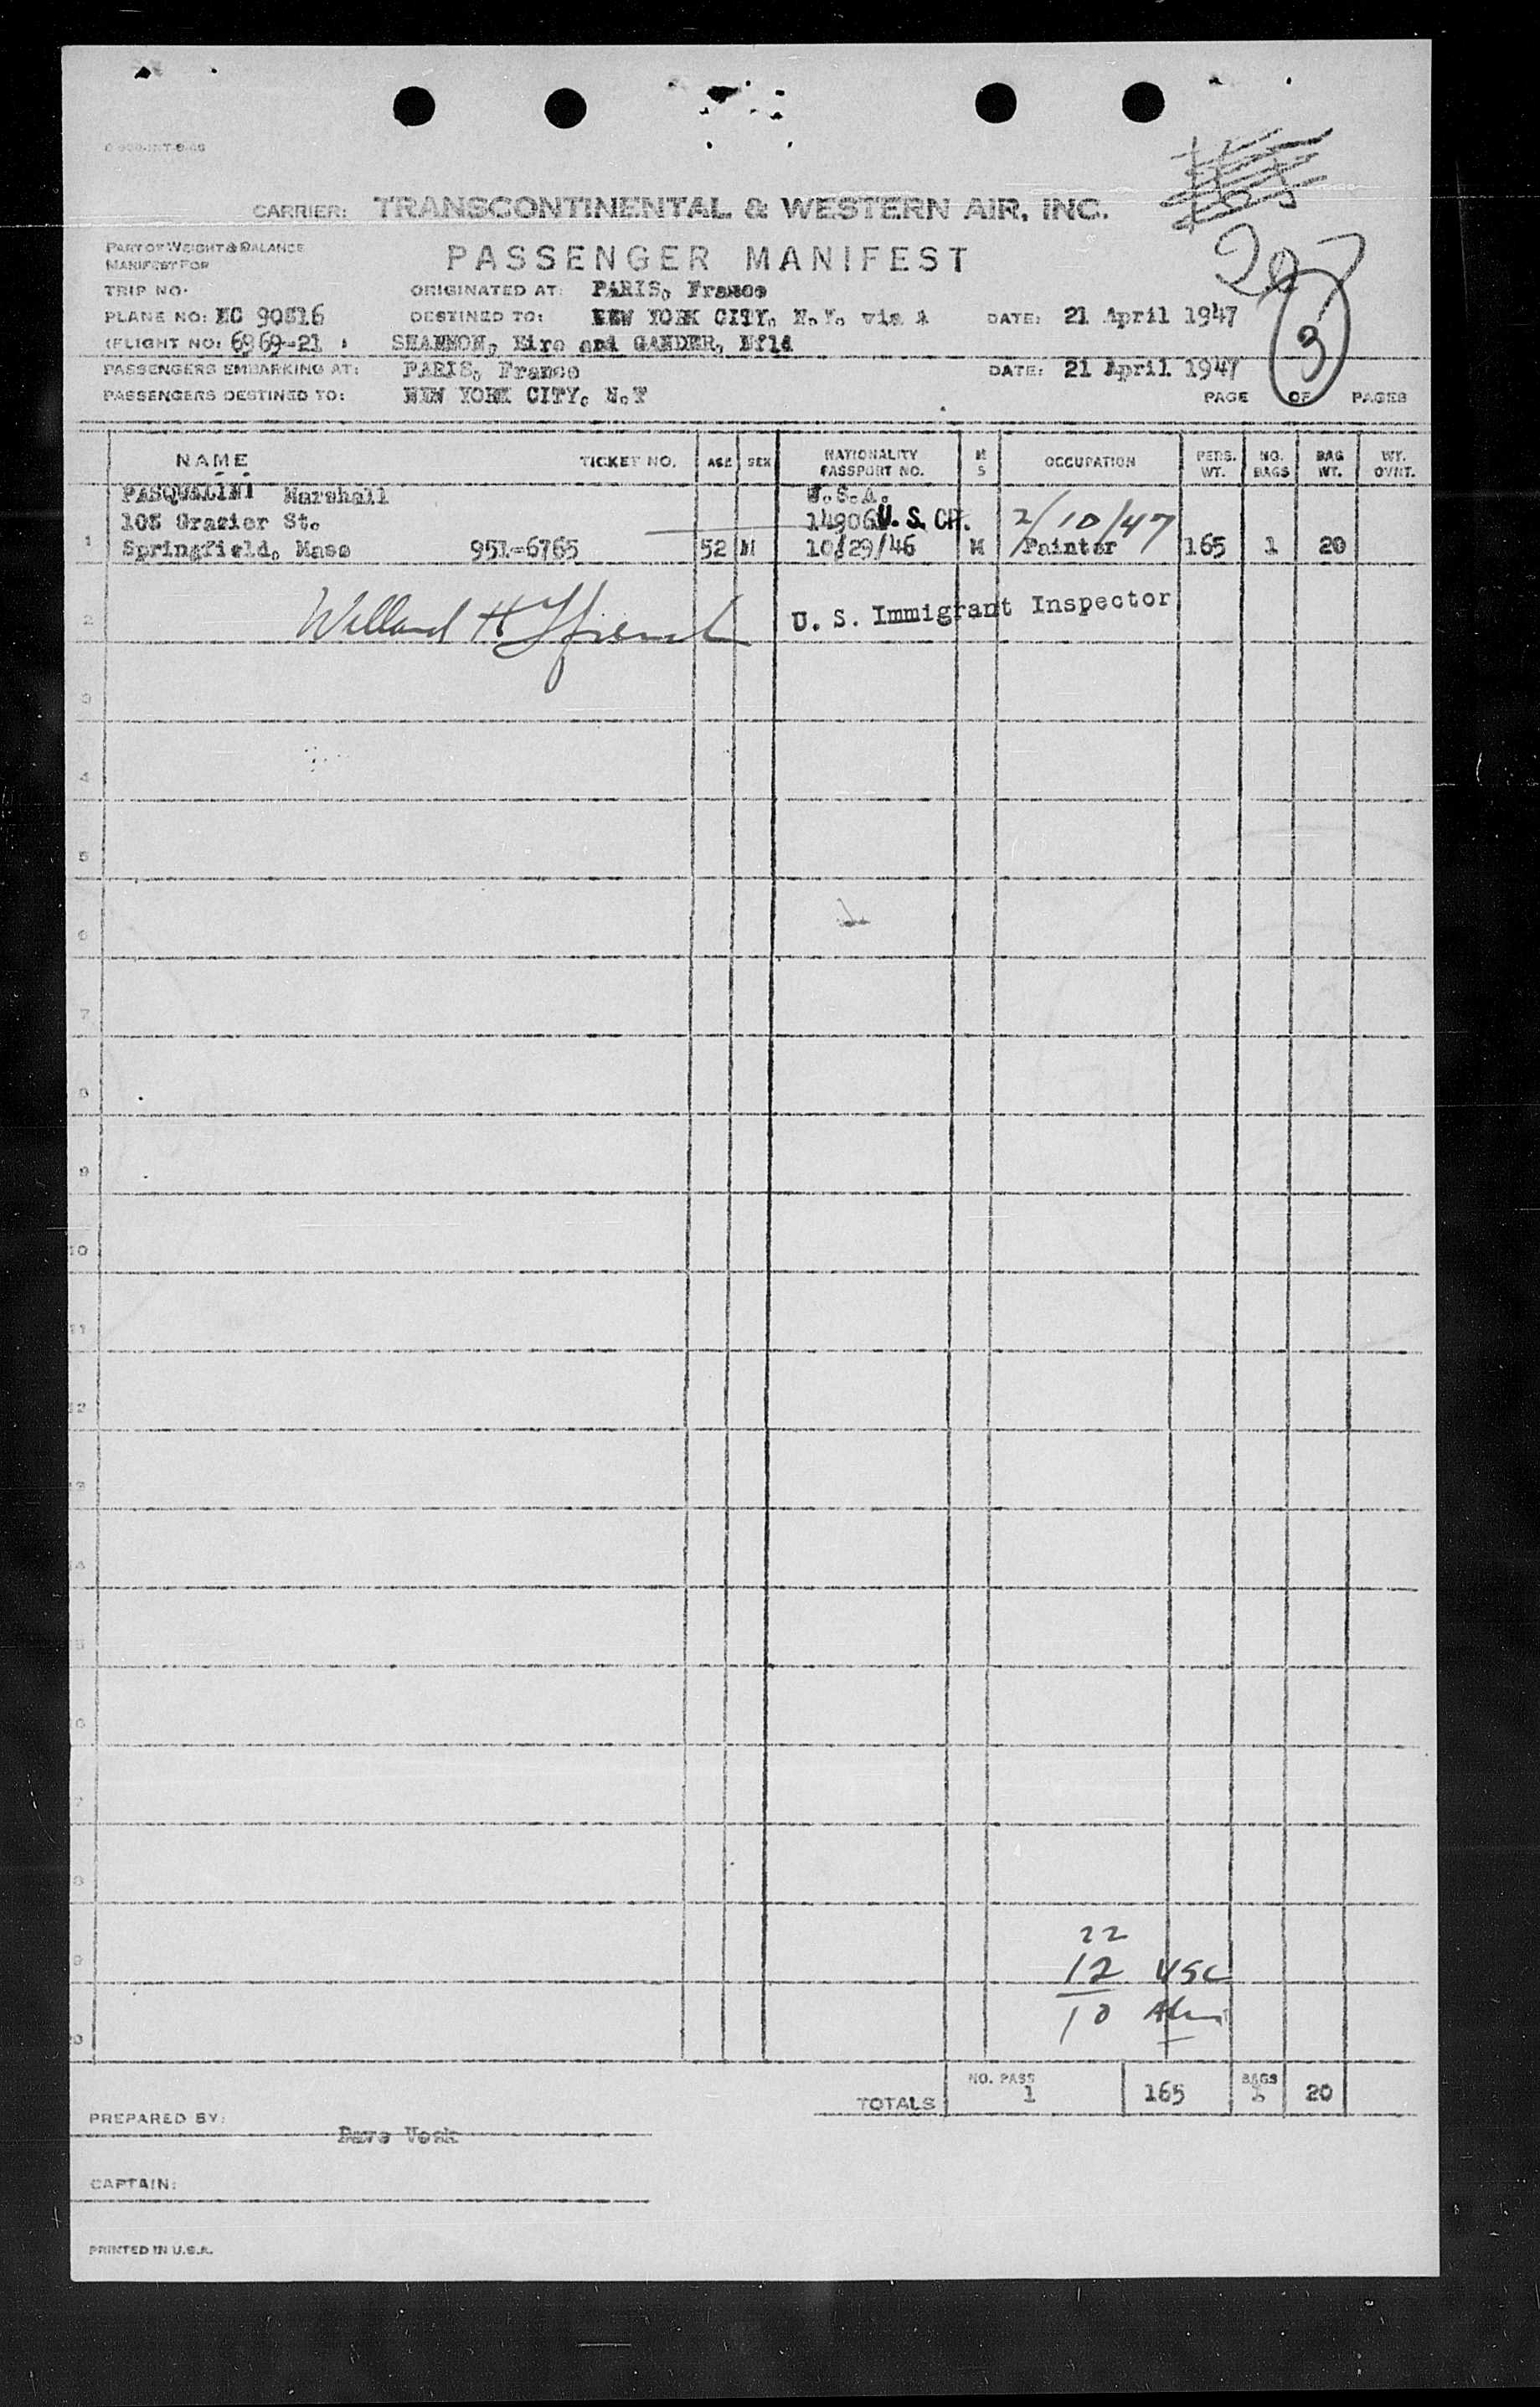 CARRIER: TRANSCONTINENTAL & WESTERN AIR, INC.
207
PART OF WEIGHT & BALANCE
MANIFEST FOR
PASSENGER MANIFEST
TRIP NO. ORIGINATED AT: PARIS, France
PLANE NO: NC 90816 DESTINED TO: NEW YORK CITY, N.Y. via DATE: 21 April 1947
(FLIGHT NO: 6969-21 ) SHANNON, Eire and GANDER, Nfld
3
PASSENGERS EMBARKING AT: PARIS, France DATE: 21 April 1947
PASSENGERS DESTINED TO: NEW YORK CITY, N.Y PAGE OF PAGES
NAME TICKET NO. AGE SEX NATIONALITY PASSPORT NO. M S OCCUPATION PERS. WT. NO. BAGS BAG WT. WT. OVNT.
PASQUALINI Marshall U.S.A.
Grazier St. 14906 U. S. CIT. 2/10/47
1 Springfield, Mass 951-6765 52 M 10/29/46 M Painter 165 1 20
2 U. S. Immigrant Inspector
3
4
5
6
7
8
9
10
11
12
13
14
5
6
7
8
22
9 12 USC
10
20
NO. PASS BAGS
TOTALS 1 165 20
PREPARED BY:
CAPTAIN:
PRINTED IN U.S.A.